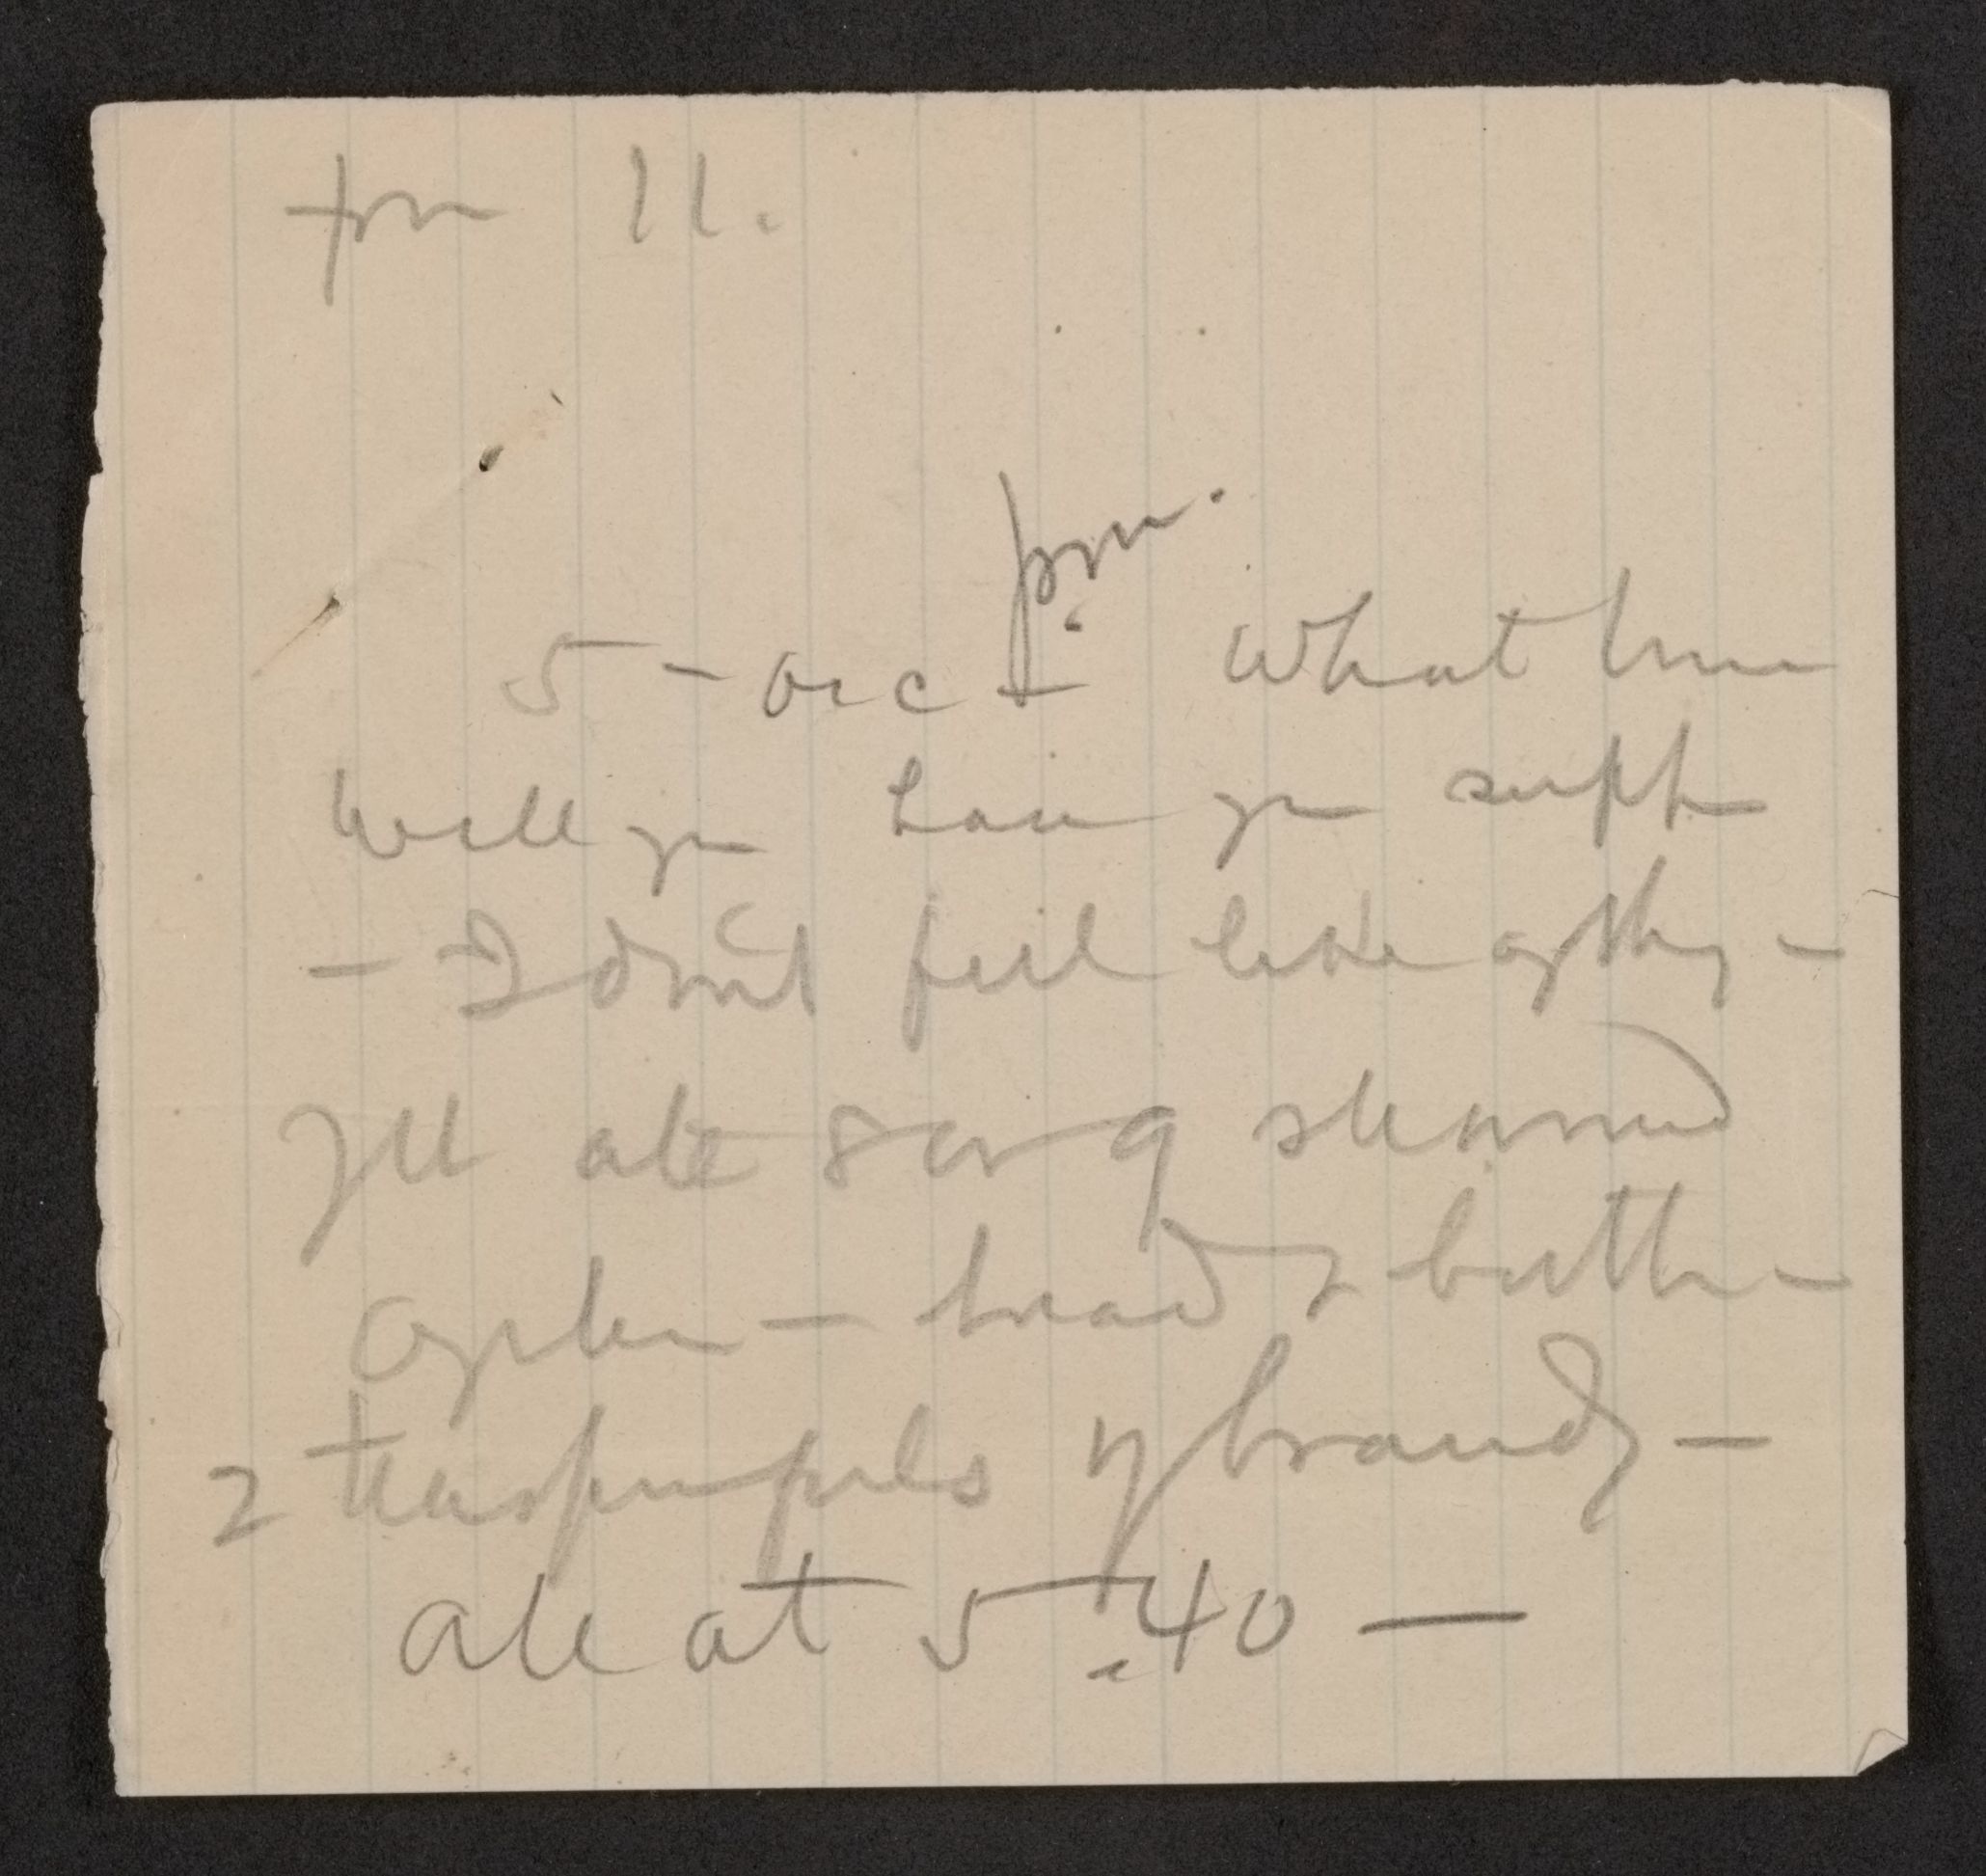 11.
pm.
5 - What time
will you have your supper
- I don't feel like oysters -
Yet ate 8 or 9 steamed
oysters - bread & butter -
2 teaspoonfuls of brandy -
ate at 5.40 -